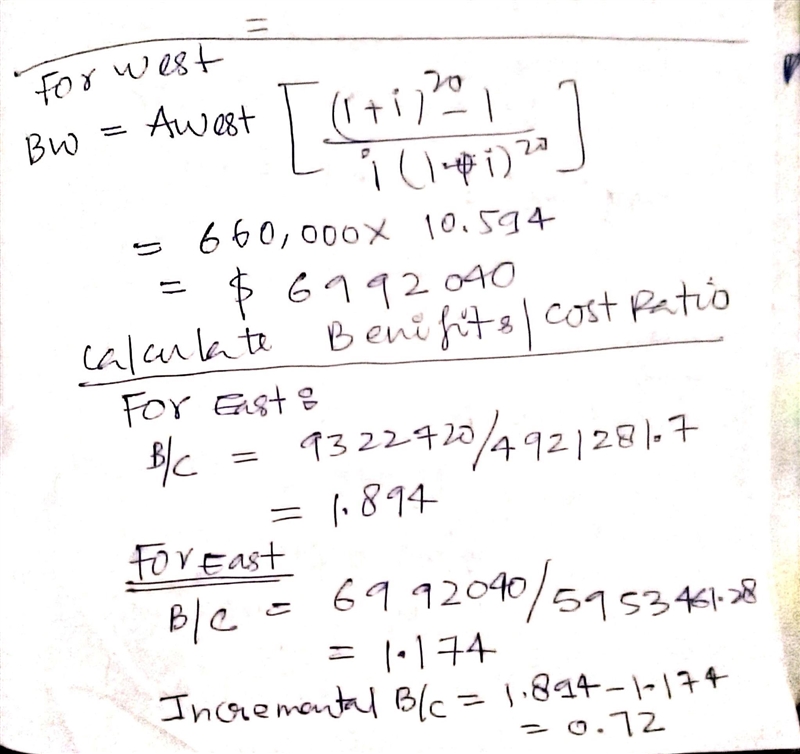 =
For West
BW = Awest [ (1+i)^20 - 1 / i(1+i)^20 ]
= 660,000 x 10.594
= $ 6992040
calculate Benifits/cost Ratio
For East:
B/C = 9322720/4921281.7
= 1.894
For East
B/C = 6992040/5953461.28
= 1.174
Incremental B/C = 1.894-1.174
= 0.72